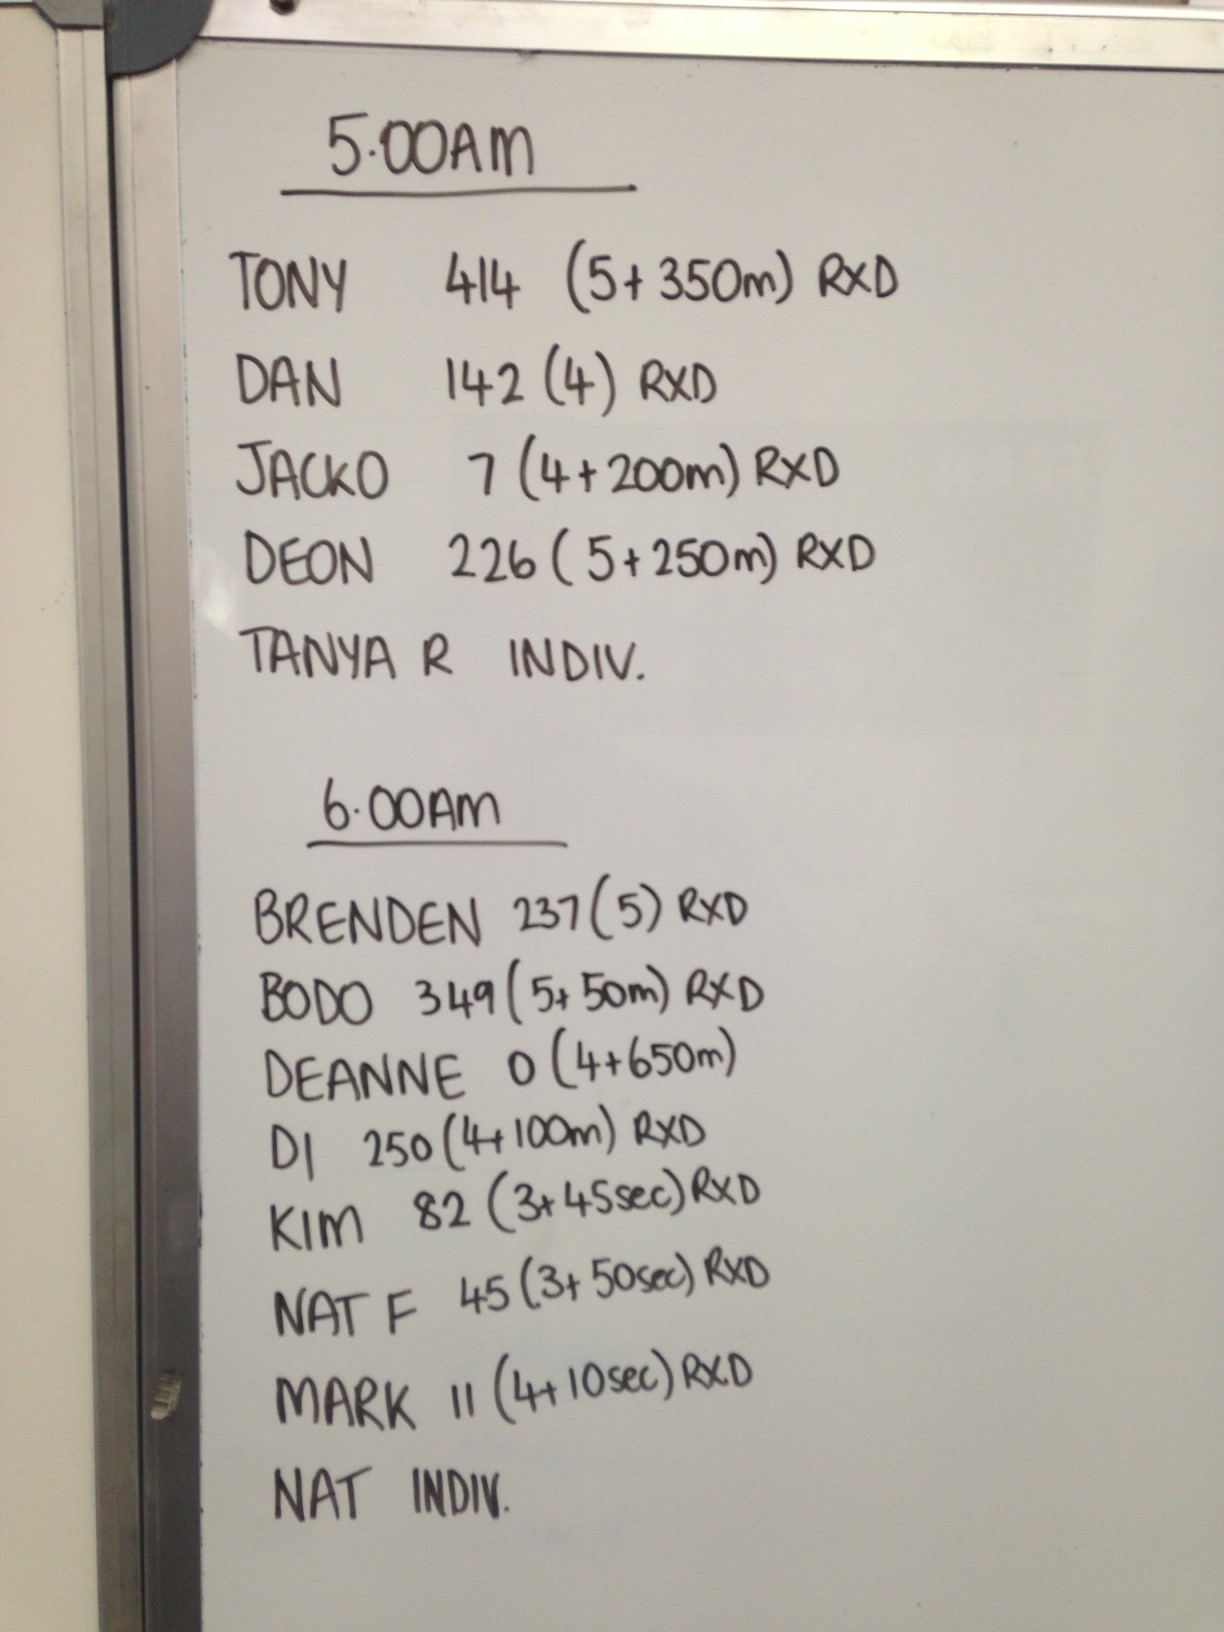 5.00AM
TONY 414 (5+350m) RXD
DAN 142 (4) RXD
JACKO 7 (4+200m) RXD
DEON 226 (5+250m) RXD
TANYA R INDIV.
6.00AM
BRENDEN 237 (5) RXD
BODO 349 (5+50m) RXD
DEANNE 0 (4+650m)
DI 250 (4+100m) RXD
KIM 82 (3+45sec) RXD
NAT F 45 (3+50sec) RXD
MARK 11 (4+10sec) RXD
NAT INDIV.